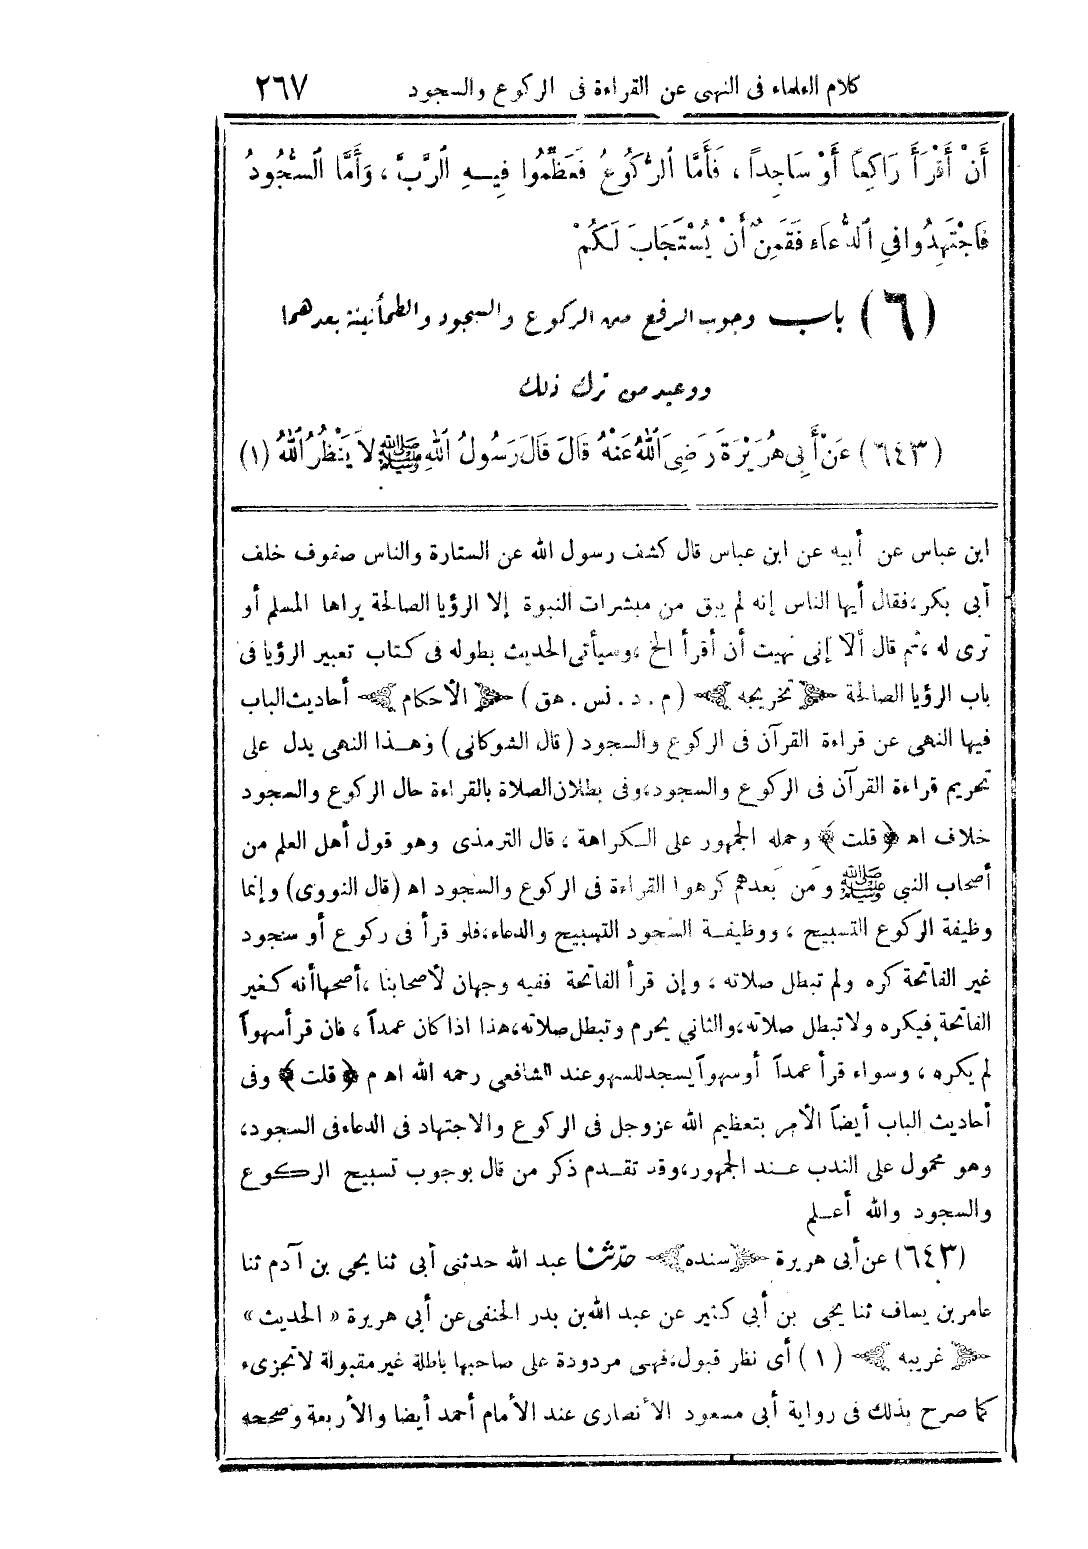 كلام العلماء فى النهى عن القراءة فى الركوع والسجود ٢٦٧
أَنْ أَقْرَأَ رَاكِعًا أَوْ سَاجِداً ، فَأَمَّا الرُّكُوعُ فَعَظِّمُوا فِيهِ الرَّبَّ ، وَأَمَّا السُّجُودُ
فَاجْتَهِدُوا فِي الدُّعَاءِ فَقَمِنٌ أَنْ يُسْتَجَابَ لَكُمْ
(٦) باب وجوب الرفع من الركوع والسجود والطمأنينة بعدهما
ووعيد من ترك ذلك
(٦٤٣) عَنْ أَبِي هُرَيْرَةَ رَضِيَ اللهُ عَنْهُ قَالَ قَالَ رَسُولُ اللهِ ﷺ لاَ يَنْظُرُ اللهُ (١)
ابن عباس عن أبيه عن ابن عباس قال كشف رسول الله عن الستارة والناس صفوف خلف
أبى بكر، فقال أيها الناس إنه لم يبق من مبشرات النبوة إلا الرؤيا الصالحة يراها المسلم أو
ترى له ، ثم قال ألا إنى نهيت أن أقرأ الخ ، وسيأتى الحديث بطوله فى كتاب تعبير الرؤيا فى
باب الرؤيا الصالحة ﴿تخريجه﴾ (م . د . نس . هق) ﴿الأحكام﴾ أحاديث الباب
فيها النهى عن قراءة القرآن فى الركوع والسجود (قال الشوكانى) وهذا النهى يدل على
تحريم قراءة القرآن فى الركوع والسجود، وفى بطلان الصلاة بالقراءة حال الركوع والسجود
خلاف اه ﴿قلت﴾ وحمله الجمهور على الكراهة ، قال الترمذى وهو قول أهل العلم من
أصحاب النبى ﷺ ومن بعدهم كرهوا القراءة فى الركوع والسجود اه (قال النووى) وإنما
وظيفة الركوع التسبيح ، ووظيفة السجود التسبيح والدعاء، فلو قرأ فى ركوع أو سجود
غير الفاتحة كره ولم تبطل صلاته ، وإن قرأ الفاتحة ففيه وجهان لأصحابنا ، أصحها أنه كغير
الفاتحة فيكره ولا تبطل صلاته ، والثاني يحرم وتبطل صلاته، هذا اذا كان عمداً ، فان قرأ سهواً
لم يكره ، وسواء قرأ عمداً أو سهواً يسجد للسهو عند الشافعي رحمه الله اه م ﴿قلت﴾ وفى
أحاديث الباب أيضاً الأمر بتعظيم الله عز وجل فى الركوع والاجتهاد فى الدعاء فى السجود،
وهو محمول على الندب عند الجمهور، وقد تقدم ذكر من قال بوجوب تسبيح الركوع
والسجود والله أعلم
(٦٤٣) عن أبى هريرة ﴿سنده﴾ حدّثنا عبد الله حدثنى أبى ثنا يحيى بن آدم ثنا
عامر بن يساف ثنا يحيى بن أبي كثير عن عبد الله بن بدر الحنفى عن أبي هريرة « الحديث »
﴿غريبه﴾ (١) أى نظر قبول، فهى مردودة على صاحبها باطلة غير مقبولة لا تجزىء
كما صرح بذلك فى رواية أبى مسعود الأنصارى عند الأمام أحمد أيضا والأربعة وصححه